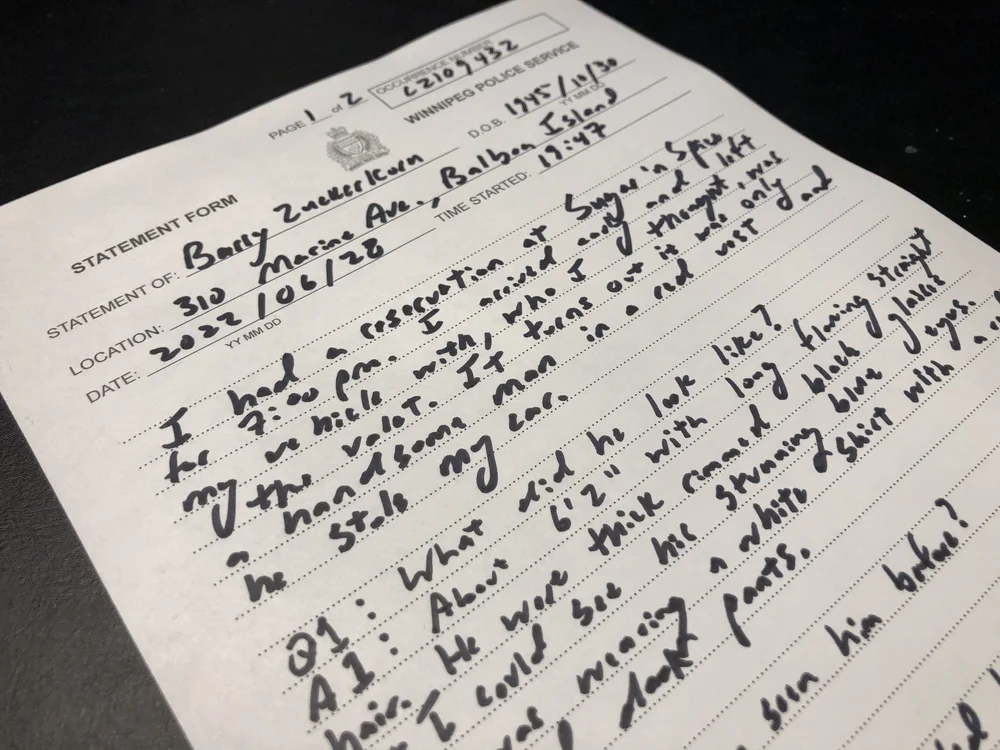 PAGE 1 of 2
OCCURRENCE NUMBER
C2109432
WINNIPEG POLICE SERVICE
STATEMENT FORM
STATEMENT OF: Barry Zuckerkorn D.O.B. 1945/10/30
YY MM DD
LOCATION: 310 Marine Ave., Balboa Island
DATE: 2022/06/28 TIME STARTED: 19:47
YY MM DD
I had a reservation at Sugar in Spice
for 7:00 pm. I arrived early and left
my vehicle with, who I thought, was
the valet. It turns out it was only
a handsome man in a red vest and
he stole my car.
Q1: What did he look like?
A1: About 6'2" with long flowing straight
hair. He wore thick rimmed black glasses
I could see his stunning blue eyes.
was wearing a white shirt with a
pants.
seen him before?